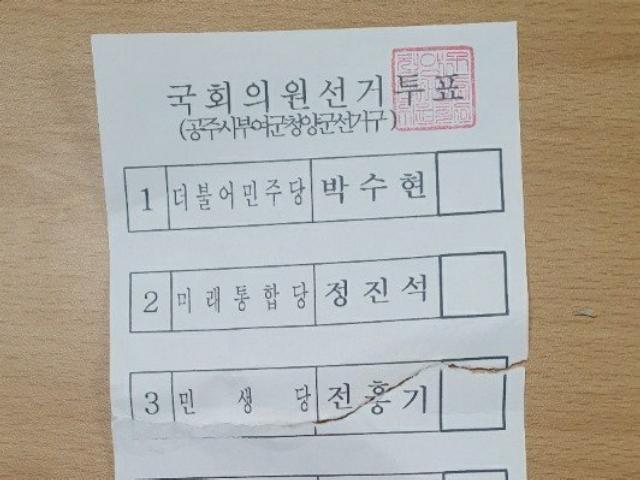 국회의원선거투표
(공주시부여군청양군선거구)
1 더불어민주당 박수현
2 미래통합당 정진석
3 민생당 전홍기